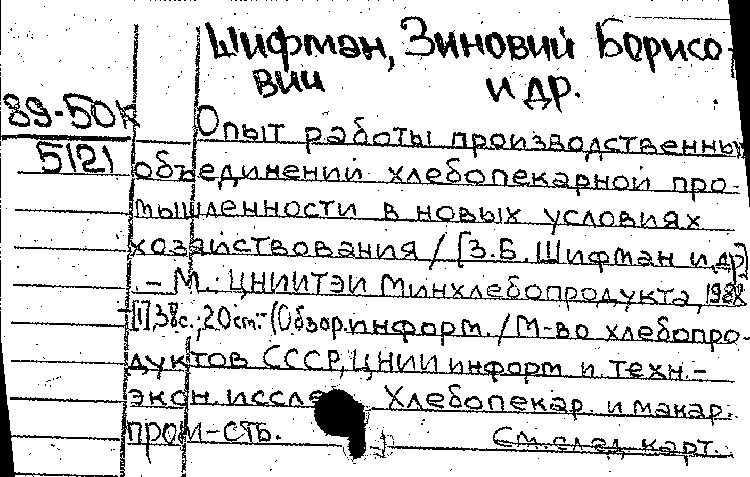 Шифман, Зиновий Борисо-
вич и др.
89-50к
5121
Опыт работы производственных
объединений хлебопекарной про-
мышленности в новых условиях
хозяйствования / [З.Б. Шифман и др]
. - М.: ЦНИИТЭИ Минхлебопродукта, 1988
[1], 38с.; 20см. - (Обзор. информ. / М-во хлебопро-
дуктов СССР, ЦНИИ информ и техн.-
экон. исслед Хлебопекар. и макар.
пром-сть.
См. след. карт.